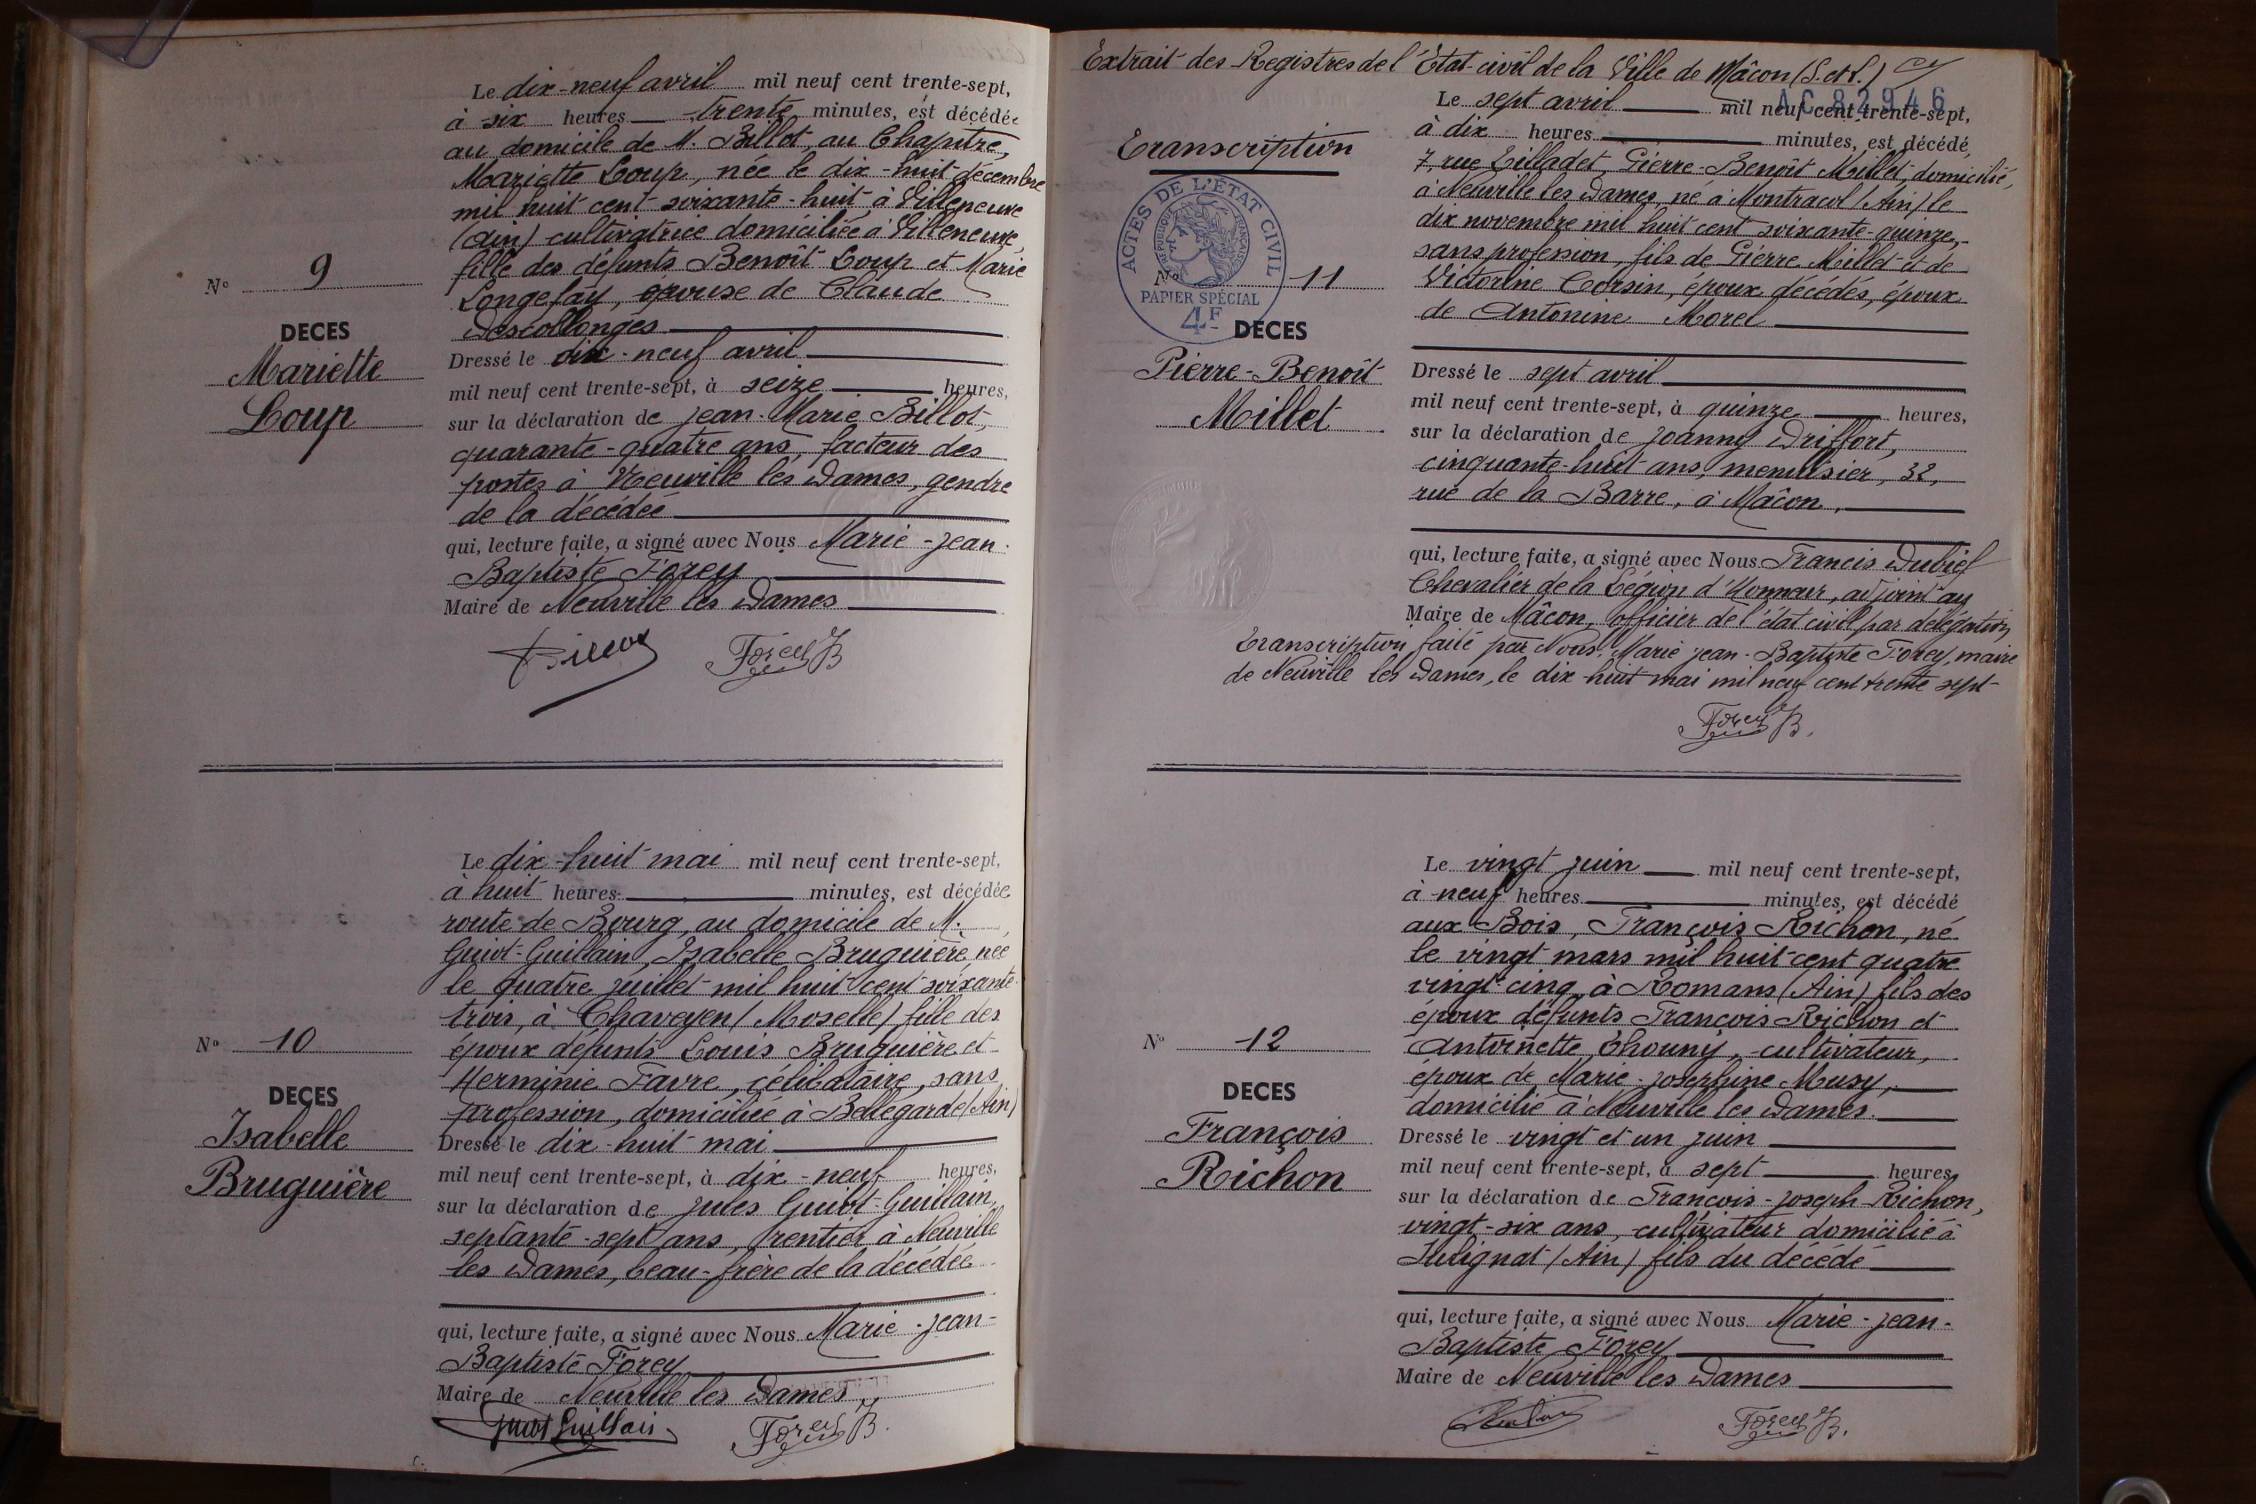 Le dix-neuf avril mil neuf cent trente-sept,
à six heures trente minutes, est décédée
au domicile de M. Billot, au Chapitre,
Mariette Loup, née le dix-huit décembre
mil huit cent soixante-huit à Villeneuve
(Ain) cultivatrice domiciliée à Villeneuve,
fille des défunts Benoît Loup et Marie
Longefay, épouse de Claude
Descollonges
N° 9
DECES
Mariette
Loup
Dressé le dix-neuf avril
mil neuf cent trente-sept, à seize heures,
sur la déclaration de Jean-Marie Billot,
quarante-quatre ans, facteur des
postes à Neuville les Dames, gendre
de la décédée
qui, lecture faite, a signé avec Nous Marie-Jean-
Baptiste Forey
Maire de Neuville les Dames
Billot Forey B
Le dix-huit mai mil neuf cent trente-sept,
à huit heures minutes, est décédée
route de Bourg, au domicile de M.
Guiot-Guillain, Isabelle Bruguière née
le quatre juillet mil huit cent soixante
trois, à (Moselle) fille des
époux défunts Louis Bruguière et
Herminie Favre, célibataire, sans
profession, domiciliée à Bellegarde (Ain)
N° 10
DECES
Isabelle
Bruguière
Dressé le dix-huit mai
mil neuf cent trente-sept, à dix-neuf heures,
sur la déclaration de Jules Guiot-Guillain,
septante-sept ans, rentier à Neuville
les Dames, beau-frère de la décédée
qui, lecture faite, a signé avec Nous Marie-Jean-
Baptiste Forey
Maire de Neuville les Dames
Guiot Guillain Forey B.
Extrait des Registres de l'Etat-civil de la Ville de Mâcon (S. et L.)
AC 82946
Transcription
ACTES DE L'ÉTAT CIVIL
RÉPUBLIQUE FRANÇAISE
PAPIER SPÉCIAL
4F
Le sept avril mil neuf cent trente-sept,
à dix heures minutes, est décédé
7, rue Tilladet, Pierre-Benoît Millet, domicilié,
à Neuville les Dames, né à Montracol (Ain) le
dix novembre mil huit cent soixante-quinze,
sans profession, fils de Pierre Millet et de
Victorine Corsin, époux décédés, époux
de Antonine Morel
N° 11
DECES
Pierre-Benoît
Millet
Dressé le sept avril
mil neuf cent trente-sept, à quinze heures,
sur la déclaration de Joanny Driffort,
cinquante-huit ans, menuisier, 32,
rue de la Barre, à Mâcon,
qui, lecture faite, a signé avec Nous Francis Dubief
Chevalier de la Légion d'Honneur, adjoint au
Maire de Mâcon, officier de l'état civil par délégation
Transcription faite par Nous, Marie Jean-Baptiste Forey, maire
de Neuville les Dames, le dix-huit mai mil neuf cent trente sept-
Forey B.
Le vingt juin mil neuf cent trente-sept,
à neuf heures minutes, est décédé
aux Bois, François Richon, né
le vingt mars mil huit cent quatre
vingt cinq, à Romans (Ain) fils des
époux défunts François Richon et
Antoinette Chouny, cultivateur,
époux de Marie-Josephine Musy,
domicilié à Neuville les Dames.
N° 12
DECES
François
Richon
Dressé le vingt et un juin
mil neuf cent trente-sept, à sept heures,
sur la déclaration de François-Joseph Richon,
vingt-six ans, cultivateur domicilié à
(Ain) fils du décédé
qui, lecture faite, a signé avec Nous Marie-Jean-
Baptiste Forey
Maire de Neuville les Dames
Richon Forey B.